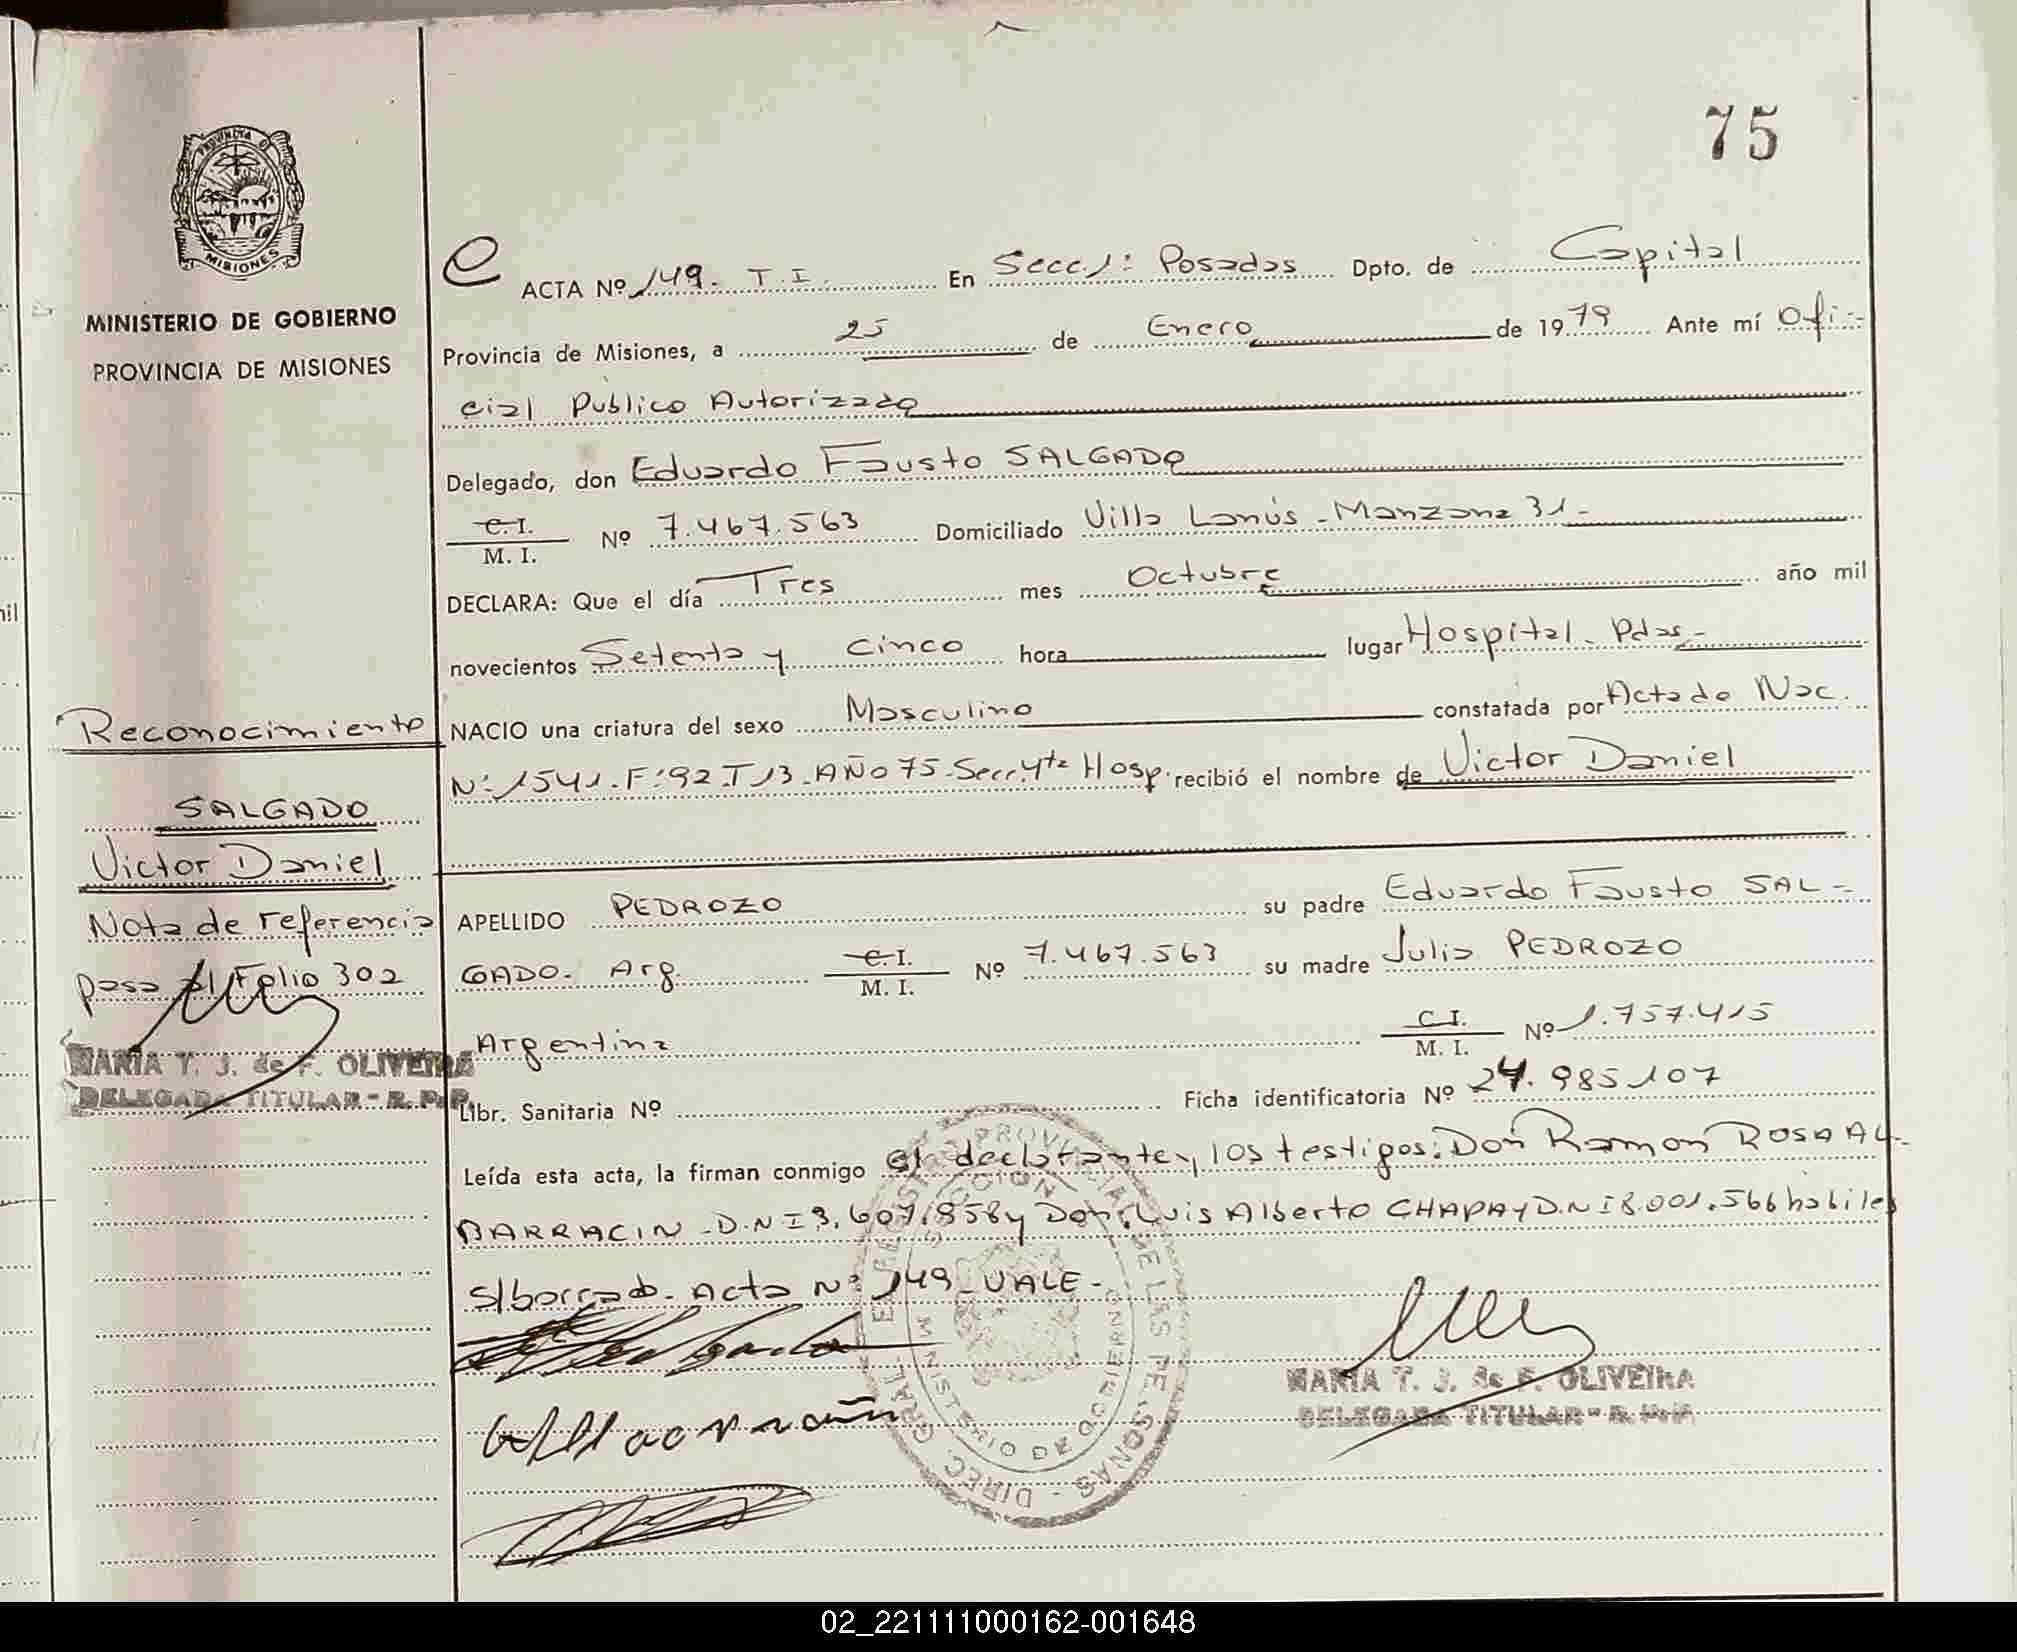 75
PROVINCIA DE
MISIONES
MINISTERIO DE GOBIERNO
PROVINCIA DE MISIONES
ACTA Nº 149. T. I. En Secc. 1: Posadas Dpto. de Capital
Provincia de Misiones, a 25 de Enero de 1979 Ante mí Ofi-
cial Publico Autorizado
Delegado, don Eduardo Fausto SALGADO
C. I.
M. I. Nº 7.467.563 Domiciliado Villa Lanús - Manzana 31-
DECLARA: Que el día Tres mes Octubre año mil
novecientos Setenta y Cinco hora lugar Hospital. Pdas-
NACIO una criatura del sexo Masculino constatada por Acta de Nac.
Nº 1541. Fº 92. T 13. AÑO 75. Secc. 4ta Hosp. recibió el nombre de Victor Daniel
APELLIDO PEDROZO su padre Eduardo Fausto SAL-
GADO. Arg. C. I.
M. I. Nº 7.467.563 su madre Julia PEDROZO
Argentina C. I.
M. I. Nº 1.757.415
Libr. Sanitaria Nº Ficha identificatoria Nº 24.985.107
Leída esta acta, la firman conmigo el declarante y los testigos: Don Ramon ROSA AL-
BARRACIN - D.N I 3.607.858 y Don Luis Alberto CHAPAY D.N I 8.001.566 habiles
S/borrado. Acta Nº 149 - VALE-
Reconocimiento
SALGADO
Victor Daniel
Nota de referencia
pasa al Folio 302
MARIA T. J. de F. OLIVEIRA
DELEGADA TITULAR - R. P. P.
MARIA T. J. de F. OLIVEIRA
DELEGADA TITULAR - R. P. P.
02_221111000162-001648